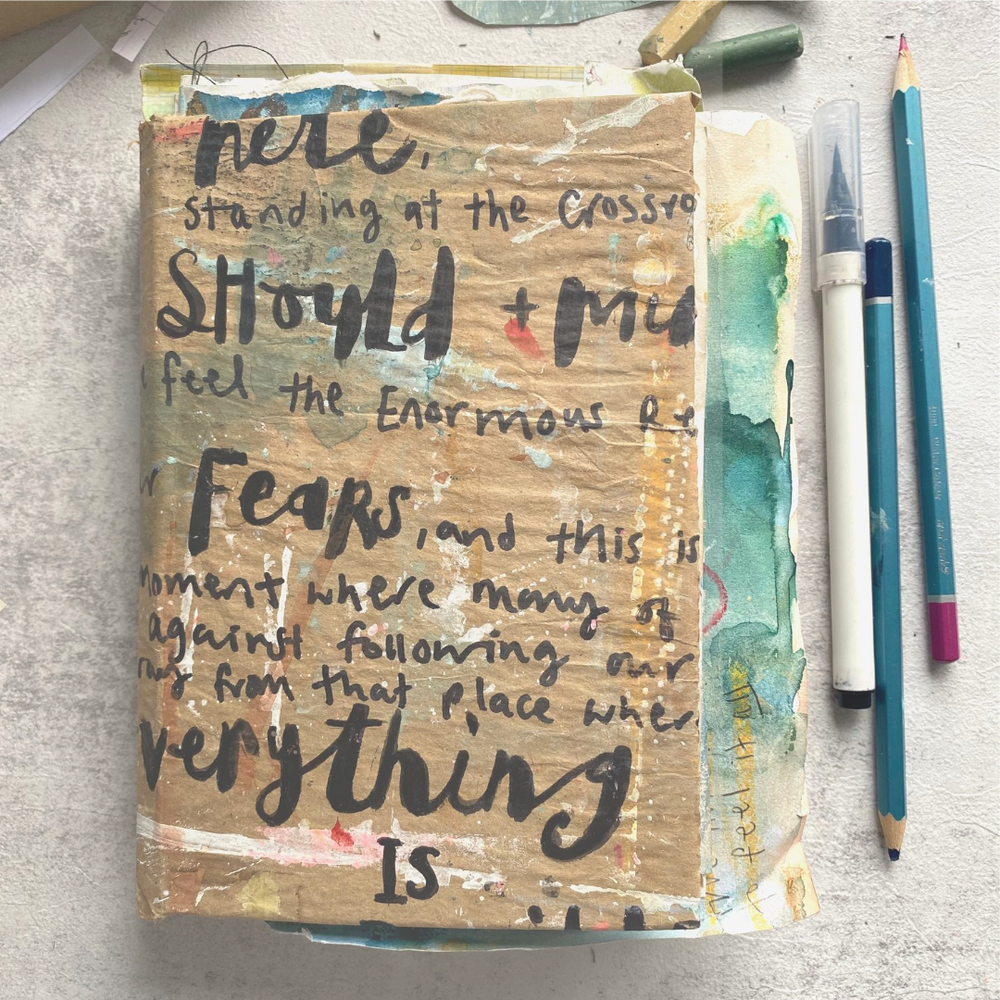 here,
standing at the Crossro
SHould + Mu
feel the Enormous Re
r Fears, and this is
moment where many of
against following our
ay from that place wher
verything
Is
feel it all